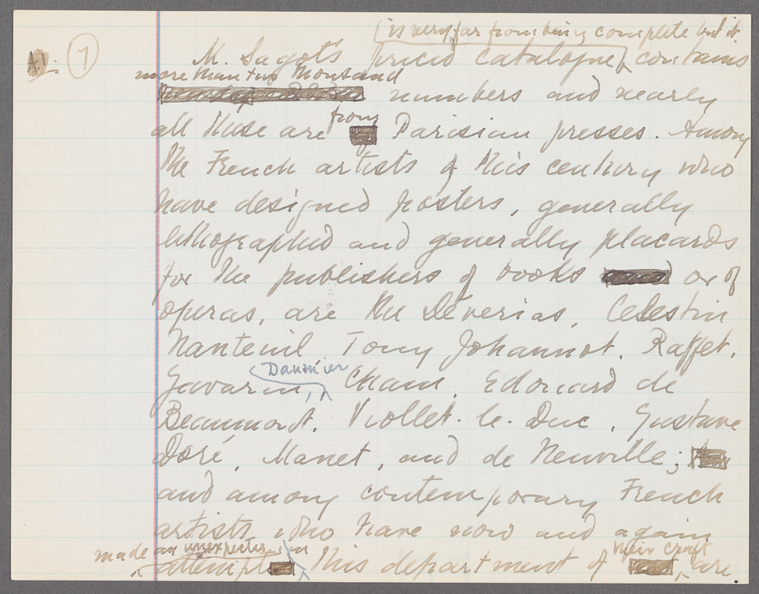 is very far from being complete but it
A.V. 7
M. Sagot's priced catalogue contains
more than two thousand
numbers and nearly
from
all these are Parisian presses. Among
the French artists of this century who
have designed posters, generally
lithographed and generally placards
for the publishers of books or of
operas, are the Deverias, Celestin
Nanteuil Tony Johannot, Raffet,
Daumier
Gavarni, Cham, Edouard de
Beaumont, Viollet-le-Duc, Gustave
Doré, Manet, and de Neuville;
and among contemporary French
artists who have now and again
made an unexpected in their craft
attempt this department of are